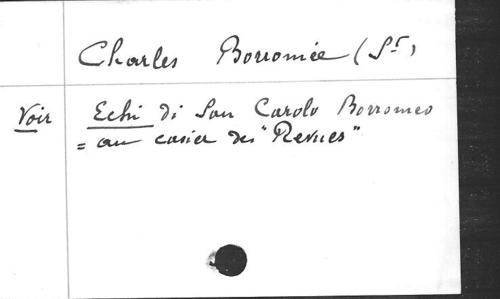 Charles Borromée (St)
Voir Echi di San Carolo Borromeo
= au casier des "Revues"